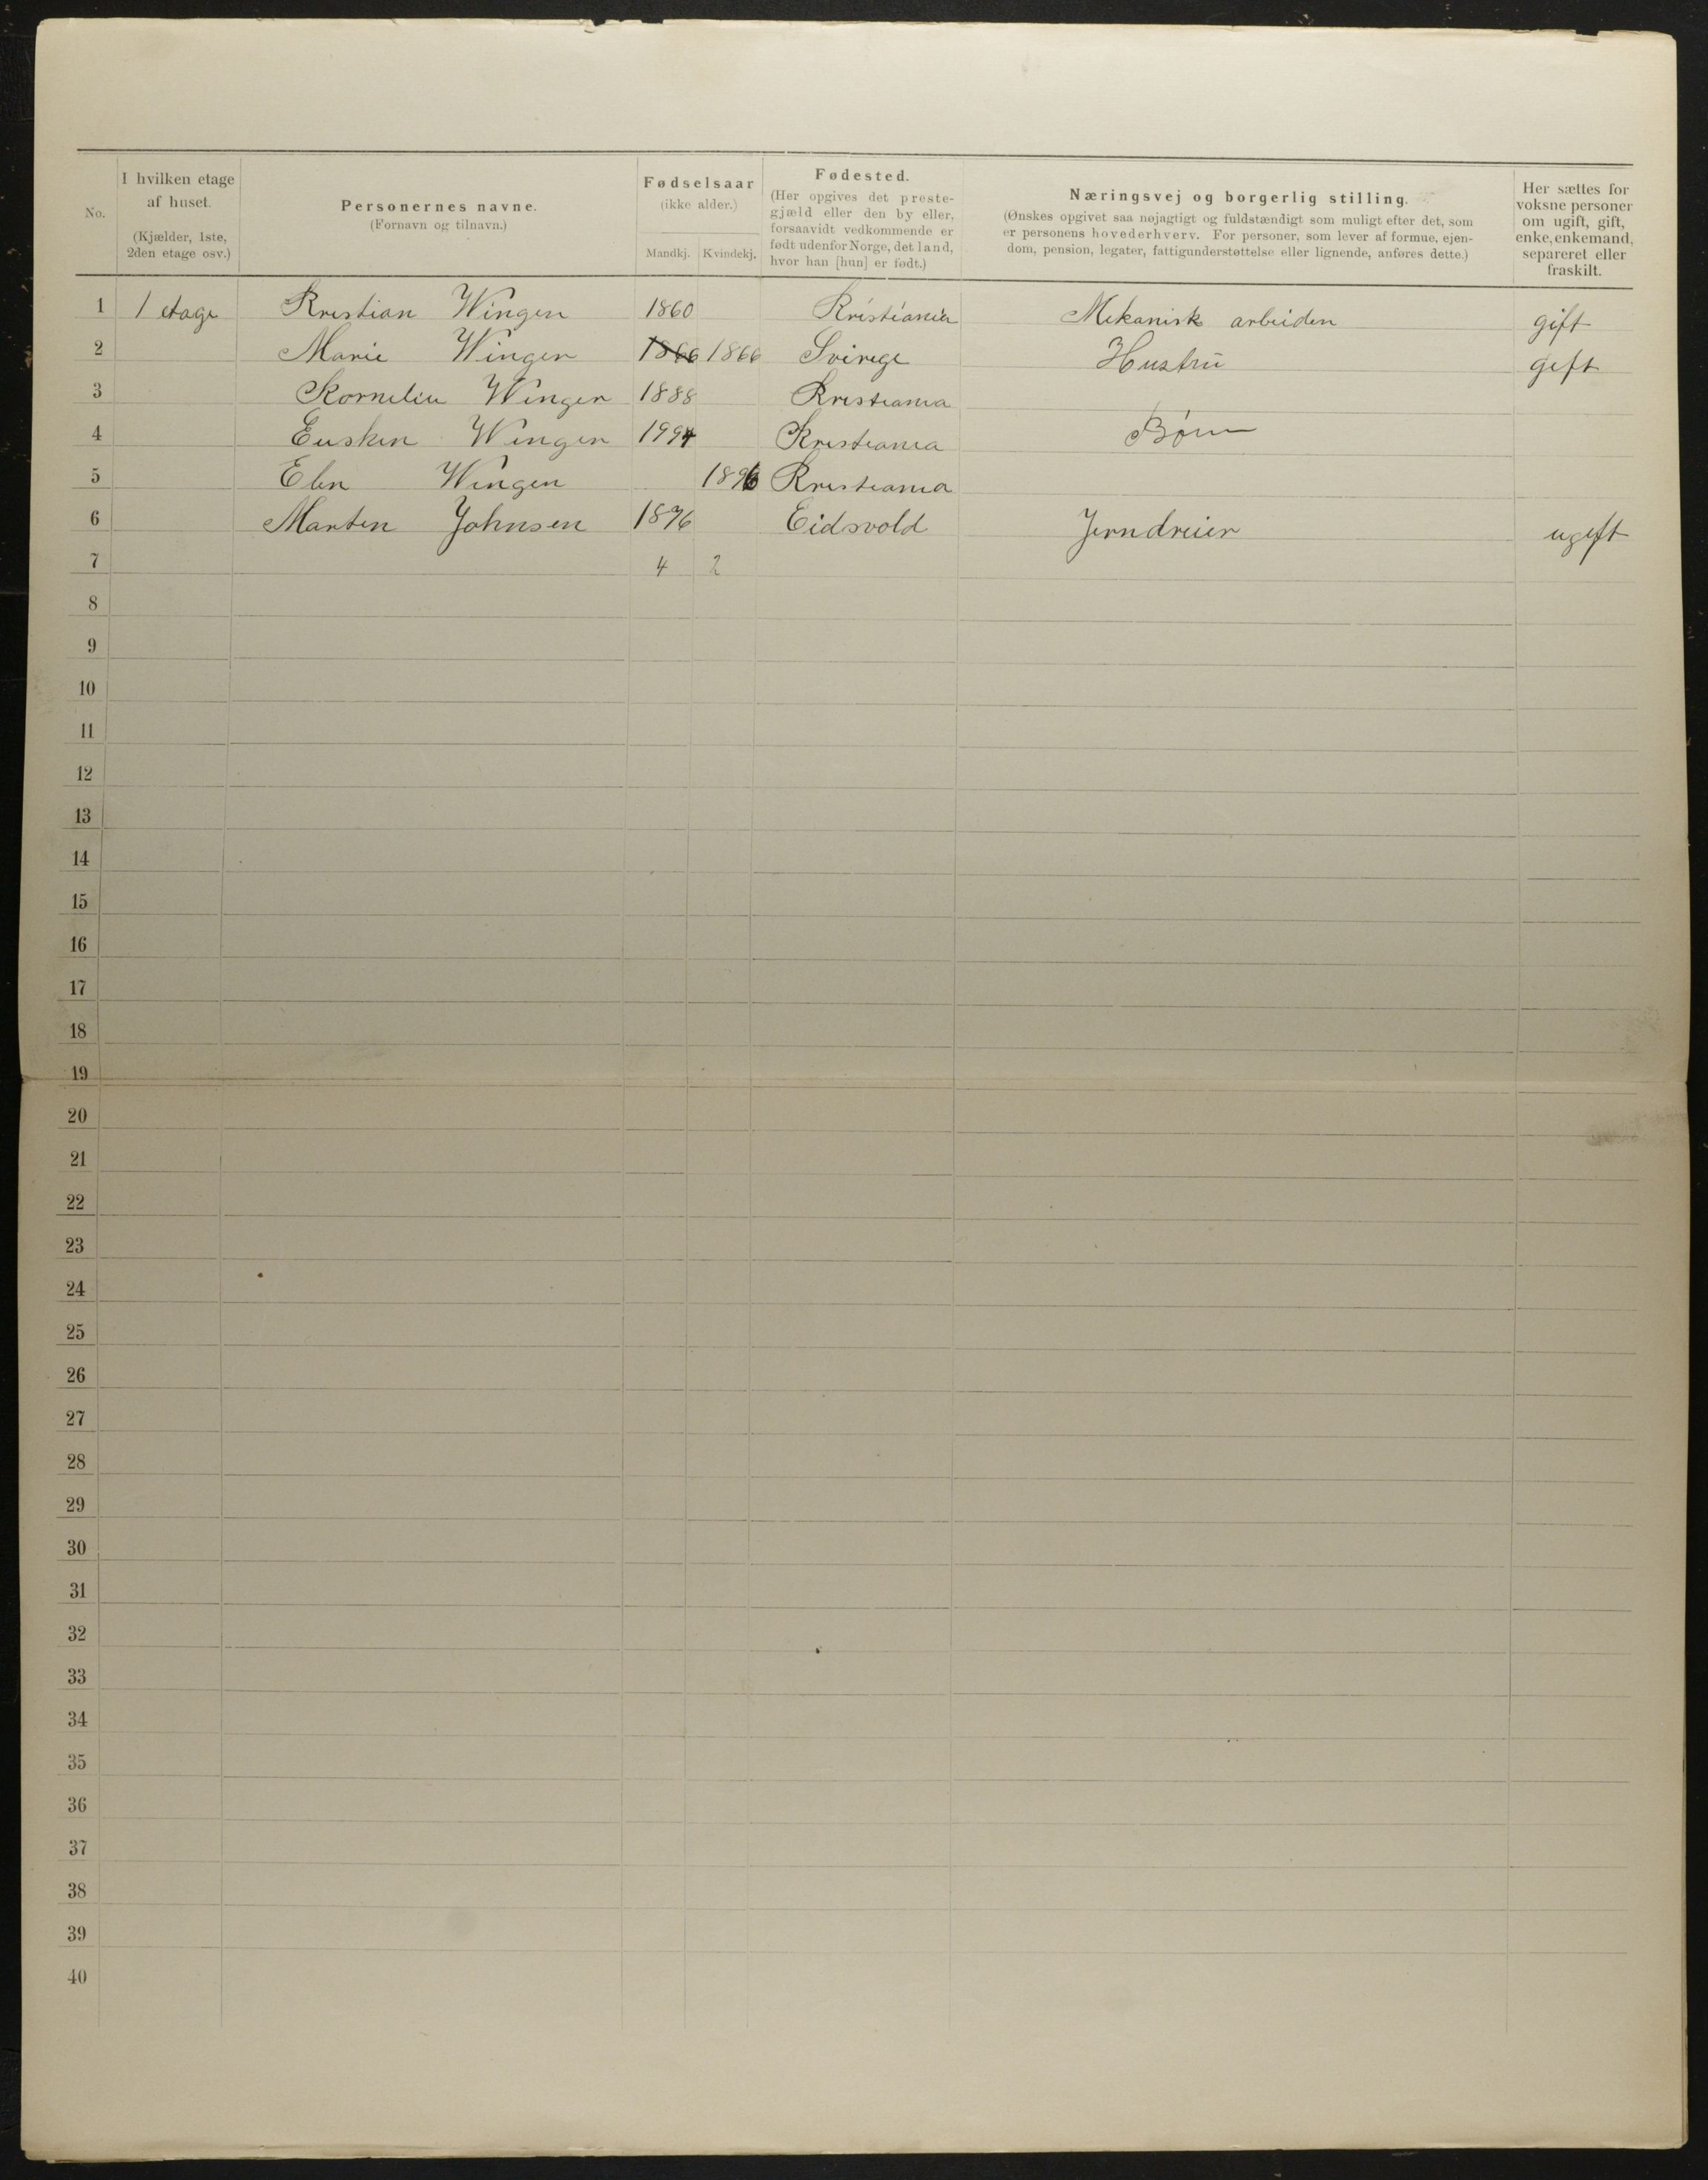 No.
I hvilken etage af huset. (Kjælder, 1ste, 2den etage osv.)
Personernes navne. (Fornavn og tilnavn.)
Fødselsaar (ikke alder.) Mandkj. Kvindekj.
Fødested. (Her opgives det prestegjæld eller den by eller, forsaavidt vedkommende er født udenfor Norge, det land, hvor han [hun] er født.)
Næringsvej og borgerlig stilling. (Ønskes opgivet saa nøjagtigt og fuldstændigt som muligt efter det, som er personens hovederhverv. For personer, som lever af formue, ejendom, pension, legater, fattigunderstøttelse eller lignende, anføres dette.)
Her sættes for voksne personer om ugift, gift, enke, enkemand, separeret eller fraskilt.
1 1 etage Kristian Winger 1860 Kristiania Mekanisk arbeider gift
2 Marie Winger 1866 1866 Sverige Hustru gift
3 Winger 1888 Kristiania
4 Winger 1994 Kristiania Børn
5 Elen Winger 1896 Kristiania
6 Marten Johnsen 1876 Eidsvold Jerndreier ugift
7 4 2
8
9
10
11
12
13
14
15
16
17
18
19
20
21
22
23
24
25
26
27
28
29
30
31
32
33
34
35
36
37
38
39
40